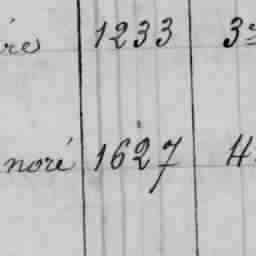 re 1233 3e
noré 1627 4